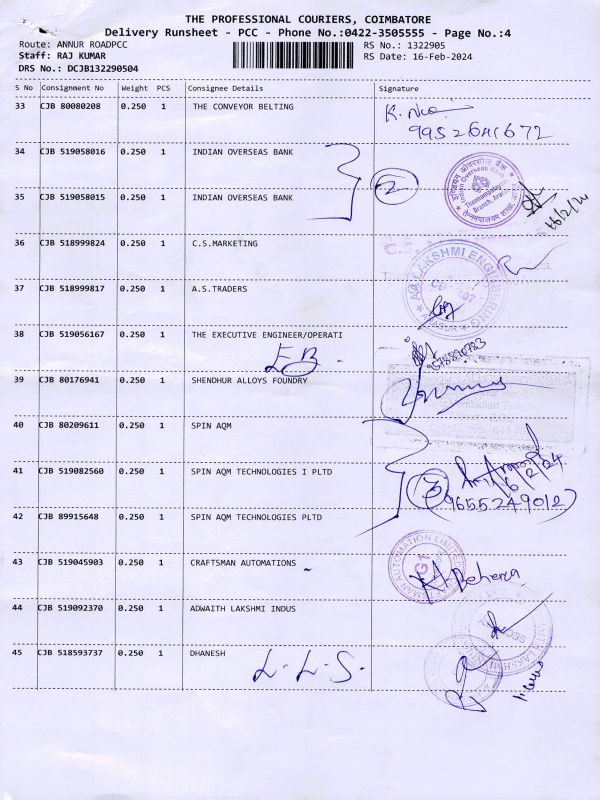 THE PROFESSIONAL COURIERS, COIMBATORE
Delivery Runsheet - PCC - Phone No.:0422-3505555 - Page No.:4
Route: ANNUR ROADPCC RS No.: 1322905
Staff: RAJ KUMAR RS Date: 16-Feb-2024
DRS No.: DCJB132290504
S No Consignment No Weight PCS Consignee Details Signature
33 CJB 80080208 0.250 1 THE CONVEYOR BELTING
34 CJB 519058016 0.250 1 INDIAN OVERSEAS BANK
35 CJB 519058015 0.250 1 INDIAN OVERSEAS BANK
2
Indian Overseas Bank
16/2/24
36 CJB 518999824 0.250 1 C.S.MARKETING
37 CJB 518999817 0.250 1 A.S.TRADERS
LAKSHMI ENGINEERING
38 CJB 519056167 0.250 1 THE EXECUTIVE ENGINEER/OPERATI
EB
39 CJB 80176941 0.250 1 SHENDHUR ALLOYS FOUNDRY
40 CJB 80209611 0.250 1 SPIN AQM
41 CJB 519082560 0.250 1 SPIN AQM TECHNOLOGIES I PLTD
3
16/2/24
9655249012
42 CJB 89915648 0.250 1 SPIN AQM TECHNOLOGIES PLTD
43 CJB 519045903 0.250 1 CRAFTSMAN AUTOMATIONS
AUTOMATION LIMITED
G1
Behera
44 CJB 519092370 0.250 1 ADWAITH LAKSHMI INDUS
45 CJB 518593737 0.250 1 DHANESH
L.L.S.